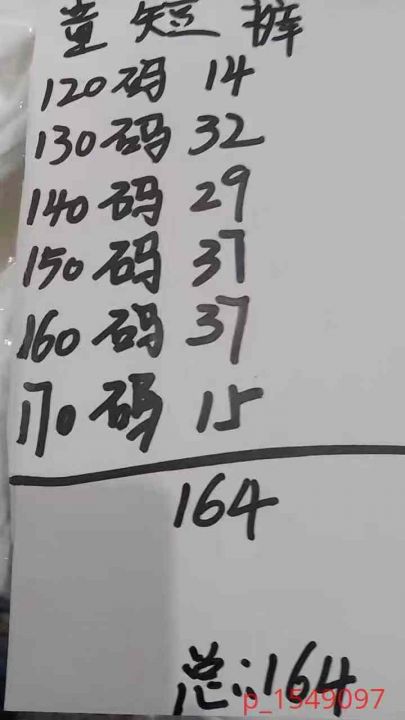 童短裤
120码 14
130码 32
140码 29
150码 37
160码 37
170码 15
164
总:164
p_1549097